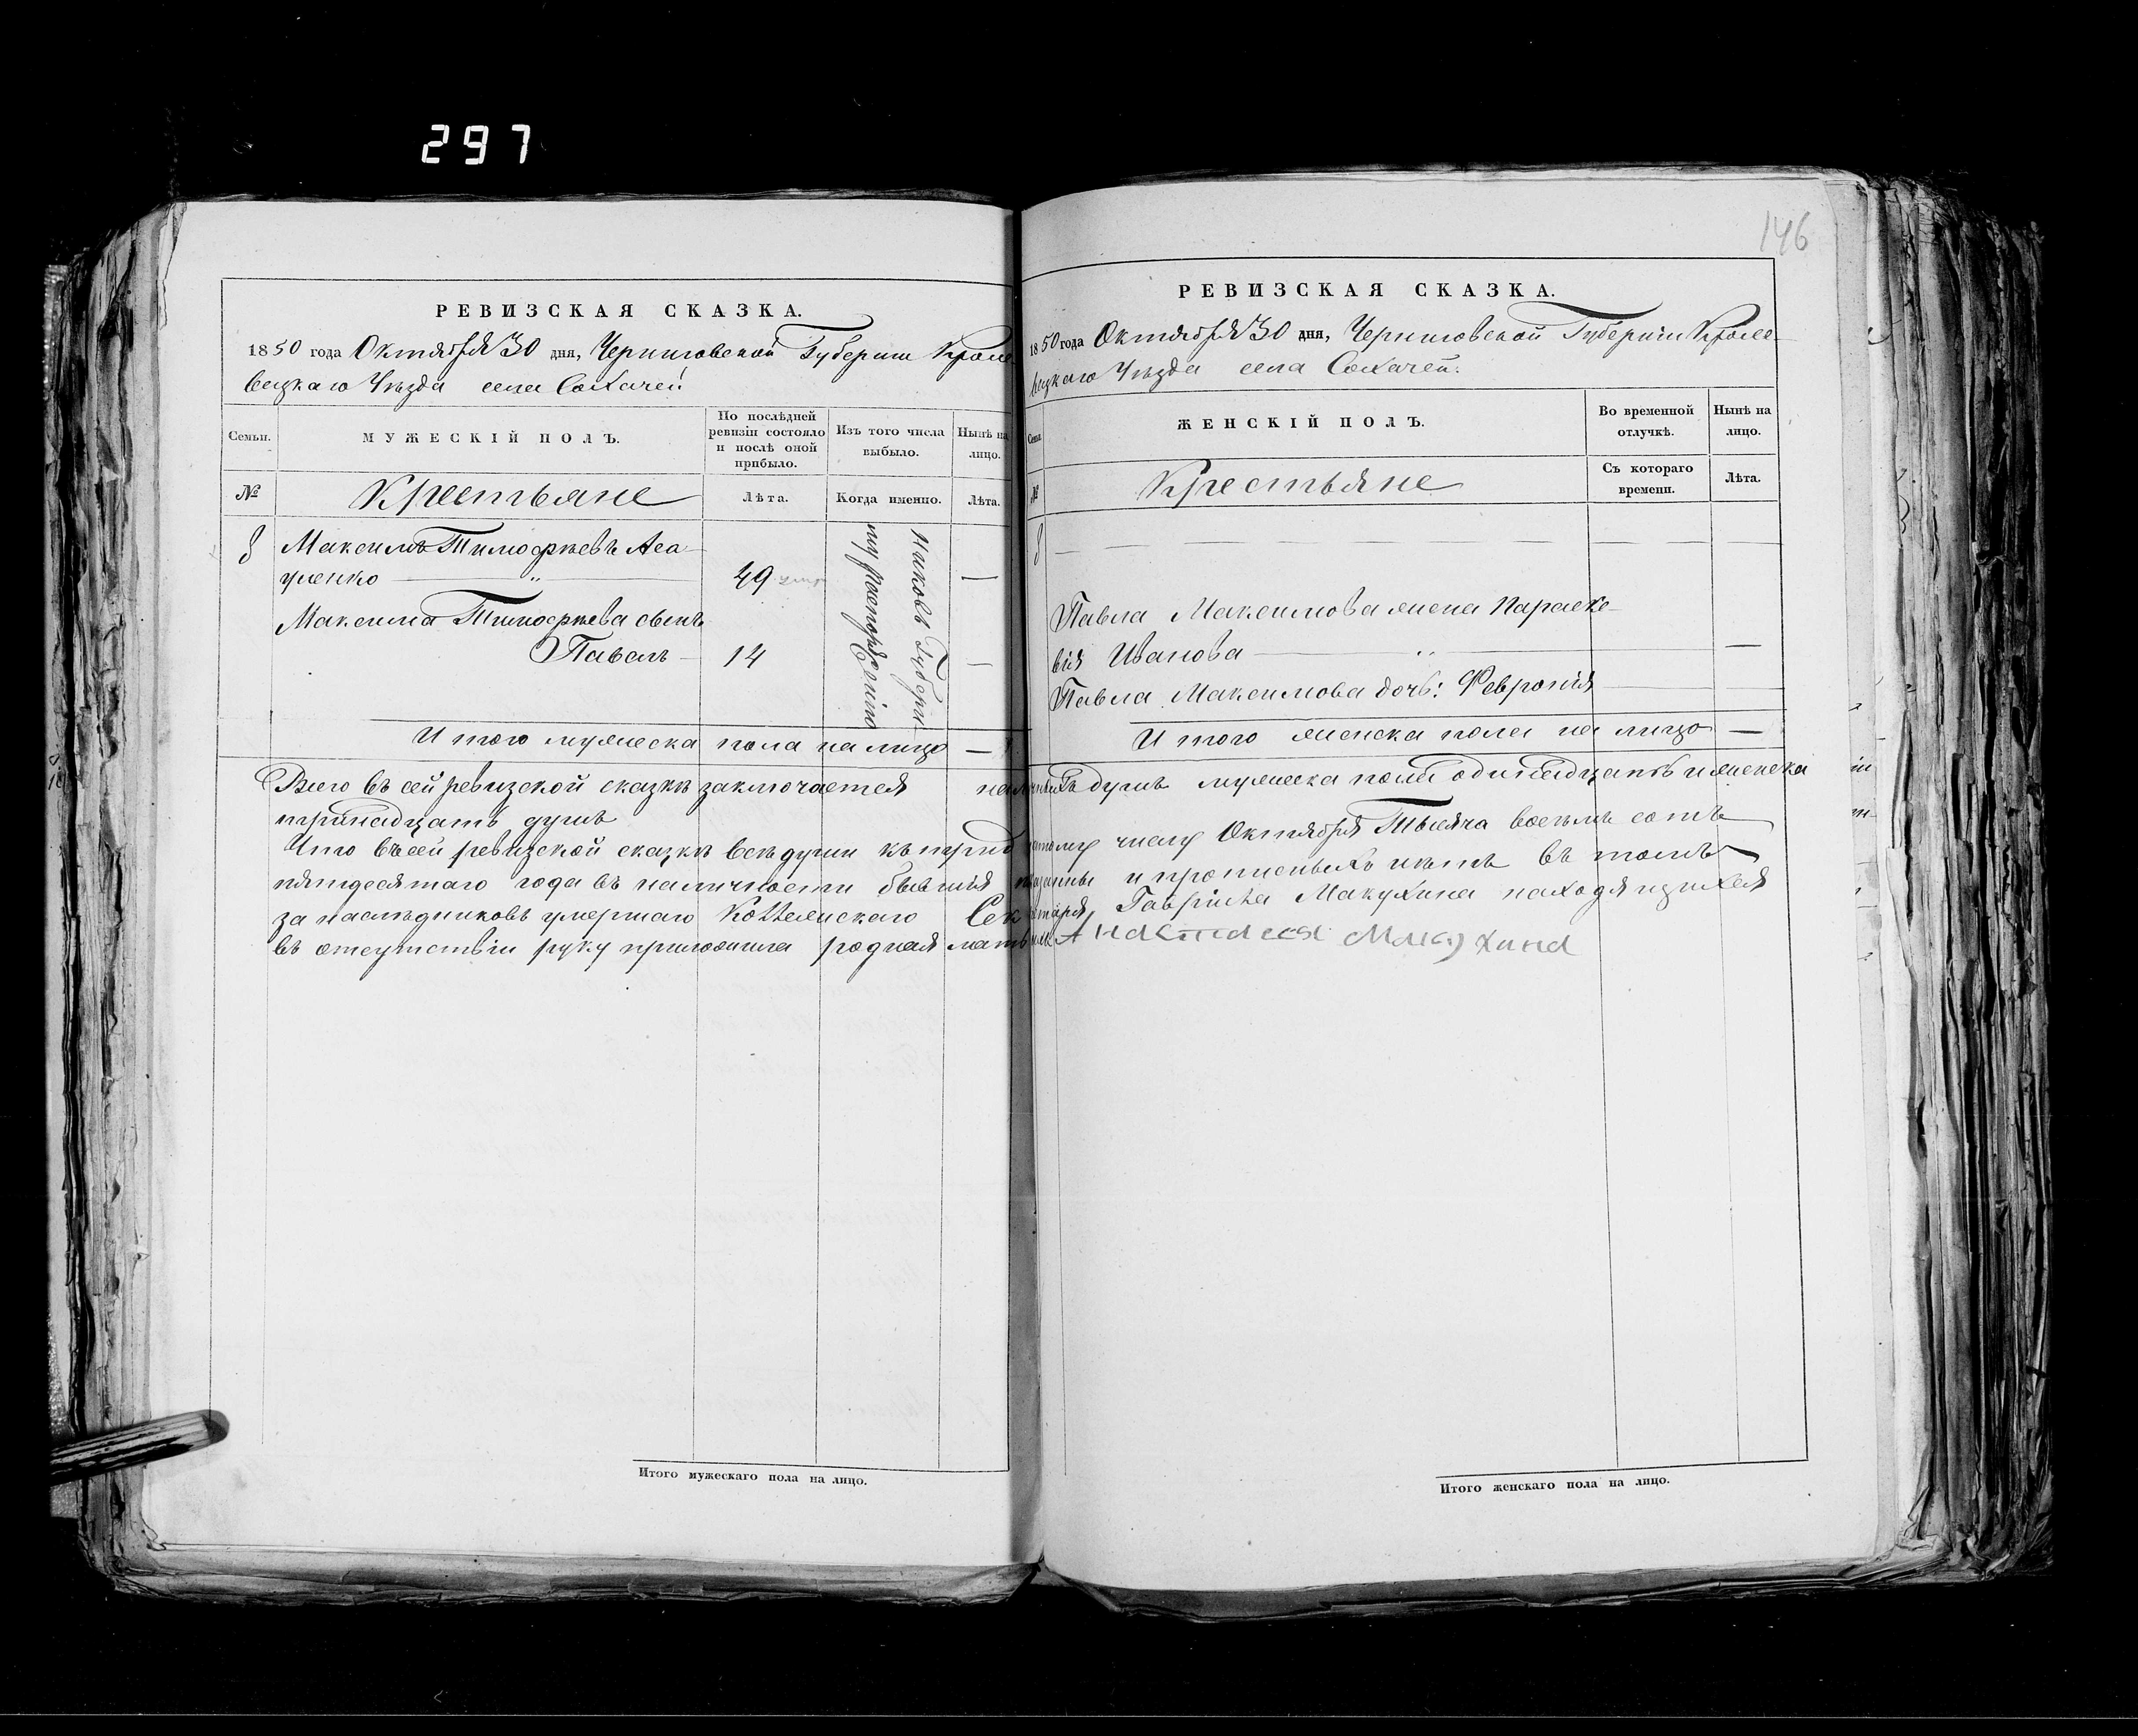 297
146
РЕВИЗСКАЯ СКАЗКА.
1850 года Октября 30 дня, Черниговской Губернии Кроле
вецкаго Уѣзда села Сохачей
Семьи.
МУЖЕСКІЙ ПОЛЪ.
По послѣдней ревизіи состояло и послѣ оной прибыло.
Изъ того числа выбыло.
Нынѣ на лицо.
№
Крестьяне
Лѣта.
Когда именно.
Лѣта.
8
Максимъ Тимофѣевъ Аса-
уленко — " — 49 —
Максима Тимофѣева сынъ
Павелъ — 14 —
Губерн
И того мужеска пола на лицо —
РЕВИЗСКАЯ СКАЗКА.
1850 года Октября 30 дня, Черниговской Губерніи Кроле-
вецкаго Уѣзда села Сохачей.
ЖЕНСКІЙ ПОЛЪ.
Во временной отлучкѣ.
Нынѣ на лицо.
№
Крестьяне
Съ котораго времени.
Лѣта.
8
Павла Максимова жена Параске-
вія Иванова — " — —
Павла Максимова дочь: Февронія — —
И того женска пола на лицо —
Всего въ сей ревизской сказкѣ заключается наличныхъ душъ мужеска пола одинадцать и женска
тринадцать душъ
Что въ сей ревизской сказкѣ всѣ души къ тридцатому числу Октября Тысяча восемь сотъ
пятдесятаго года въ наличности бывшія показаны и прописныхъ нѣтъ въ томъ
за наслѣдниковъ умершаго Секретаря, Гавріила Макухина находящихся
въ отсутствіи руку приложила родная мать Анастасея Макухина
Итого мужескаго пола на лицо.
Итого женскаго пола на лицо.